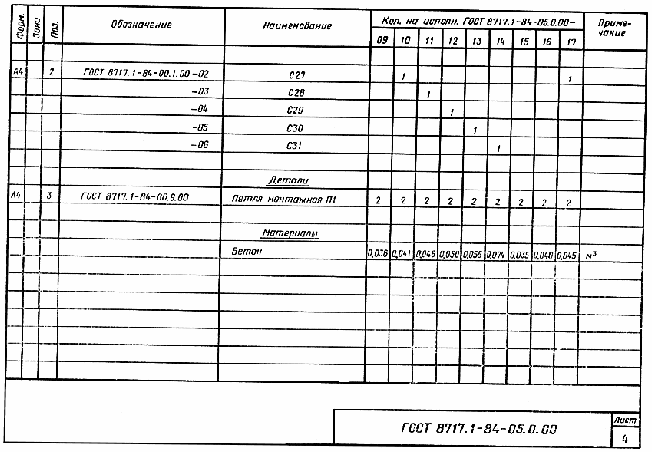 Форм. Зона Поз. Обозначение Наименование Кол. на исполн. ГОСТ 8717.1-84-05.0.00- Приме-
чание
09 10 11 12 13 14 15 16 17
А4 2 ГОСТ 8717.1-84-00.1.00-02 С27 1 1
-03 С28 1
-04 С29 1
-05 С30 1
-06 С31 1
Детали
А4 3 ГОСТ 8717.1-84-00.9.00 Петля монтажная П1 2 2 2 2 2 2 2 2 2
Материалы
Бетон 0,036 0,041 0,045 0,050 0,055 0,074 0,040 0,045 м³
ГОСТ 8717.1-84-05.0.00
Лист
4